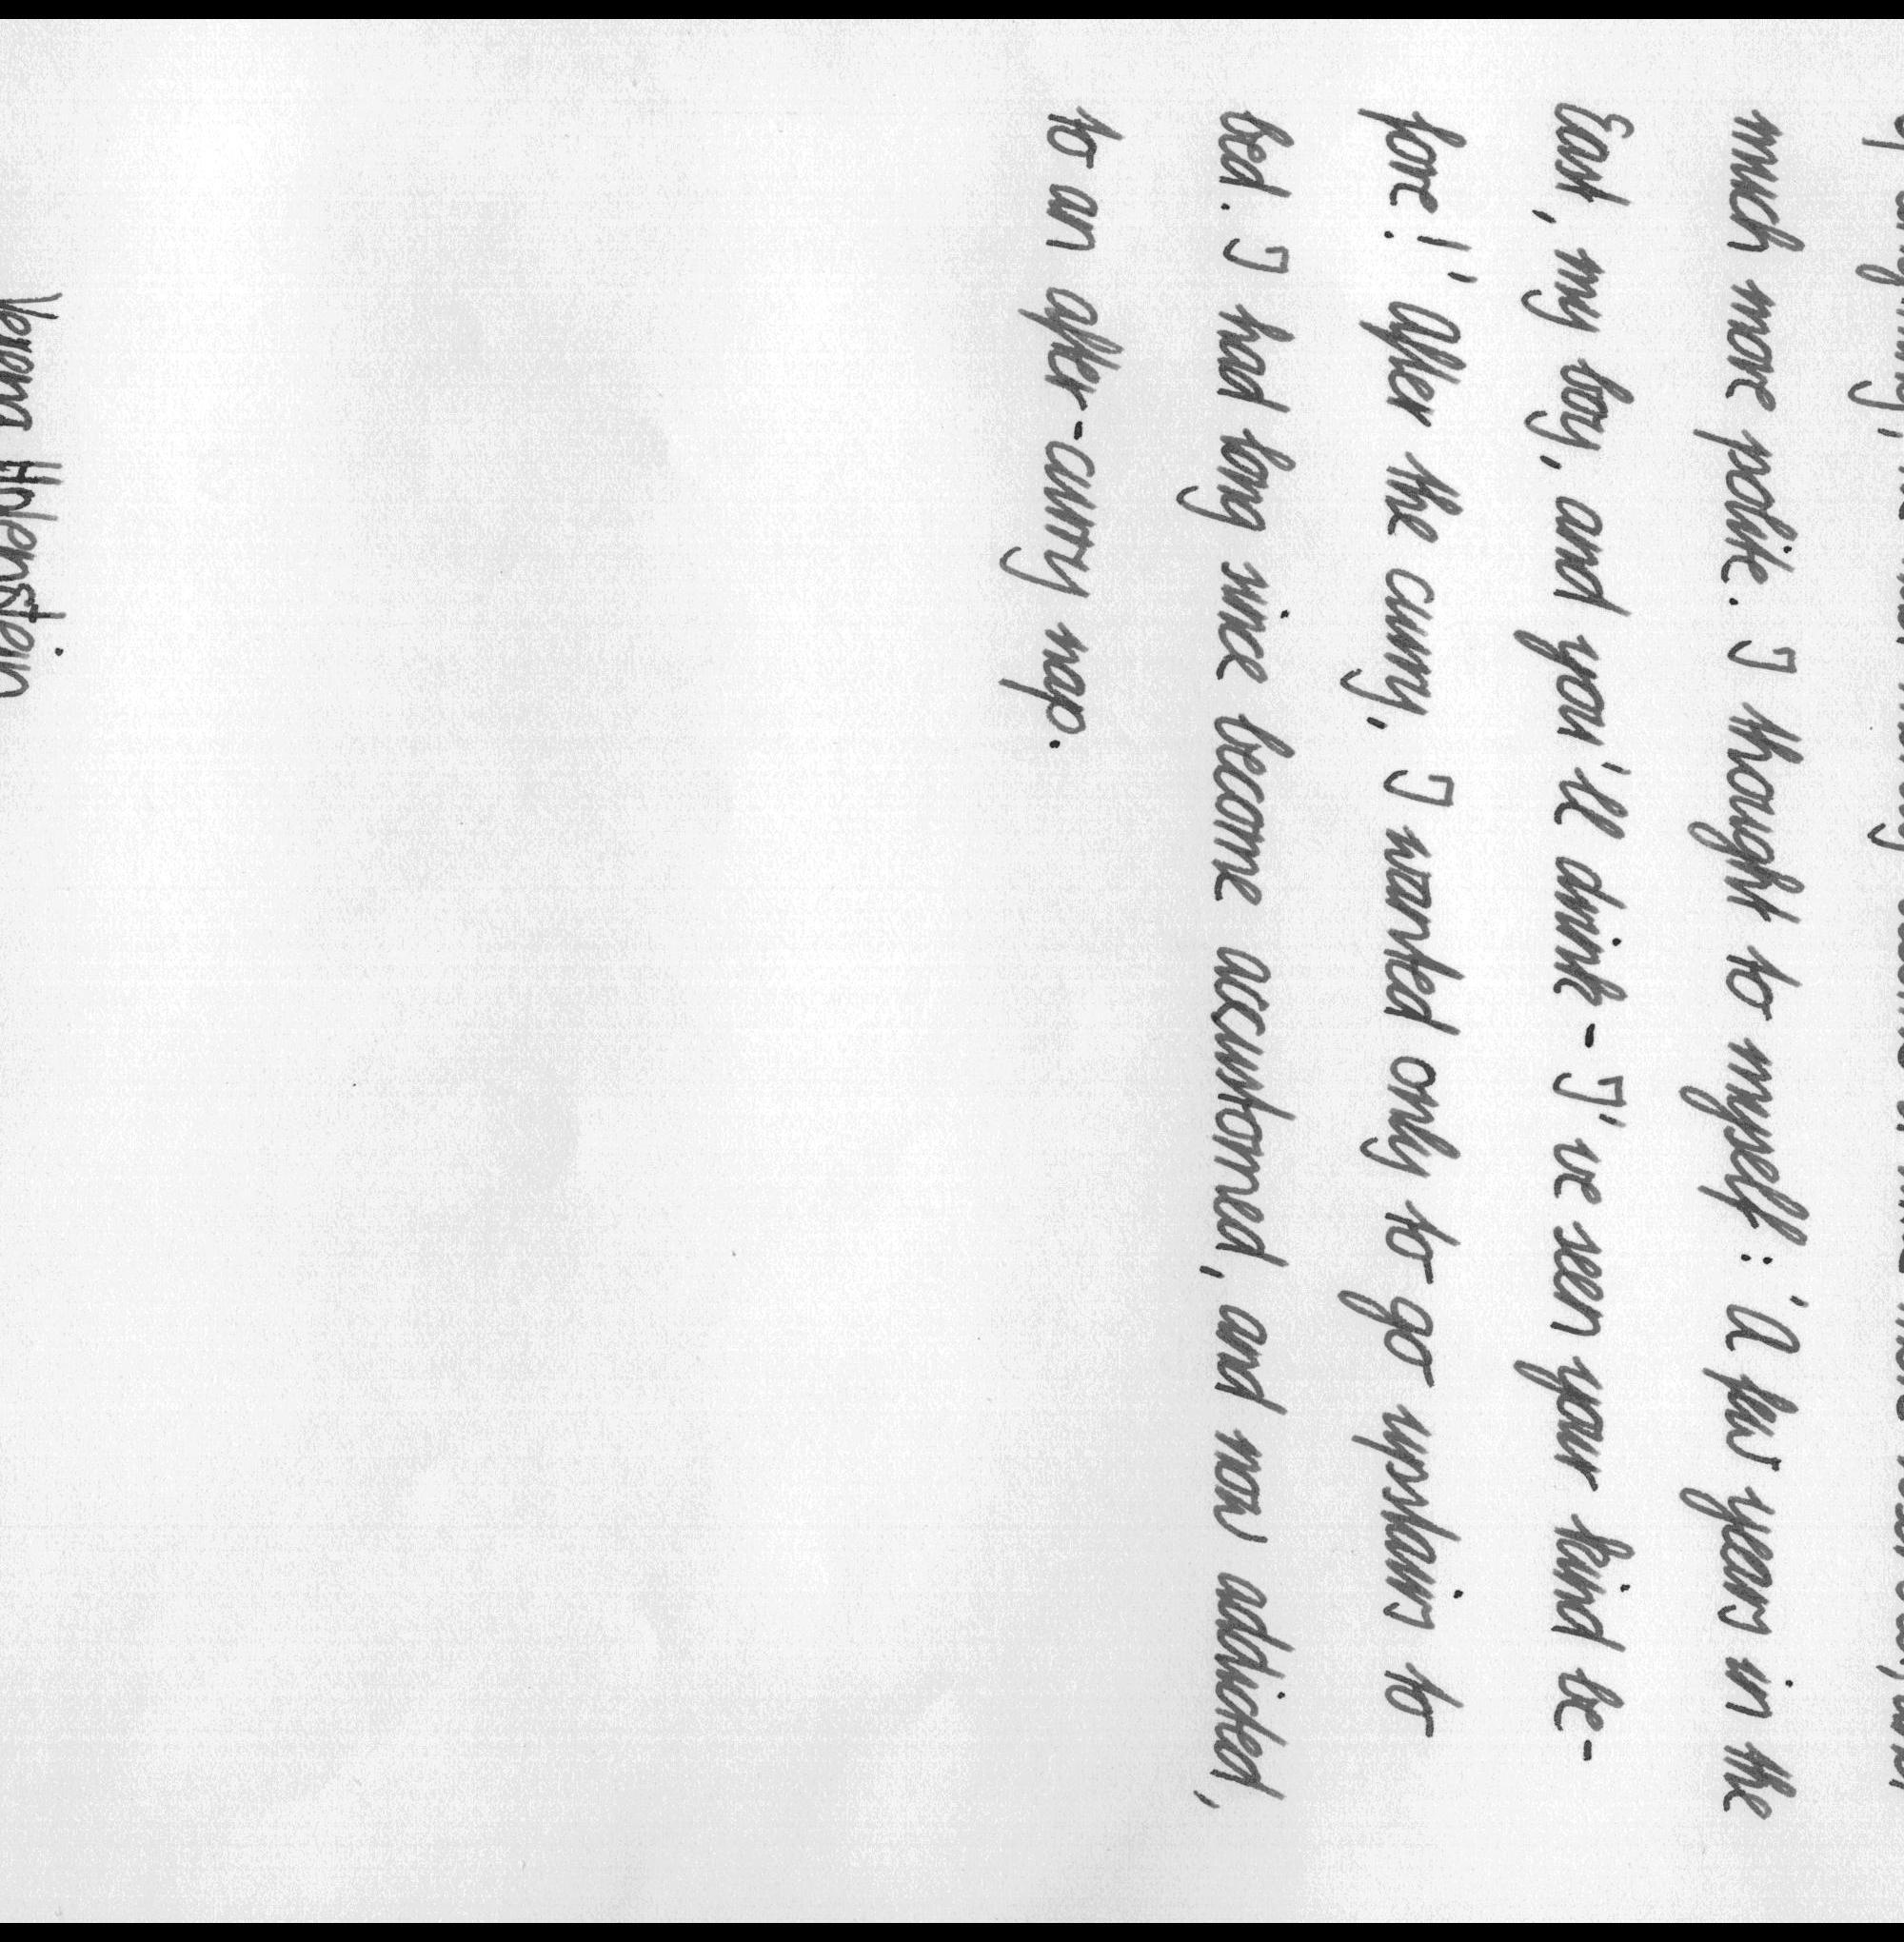 much more polite. I thought to myself: 'A few years in the
East, my boy, and you'll drink - I've seen your kind be-
fore!' After the curry, I wanted only to go upstairs to
bed. I had long since become accustomed, and now addicted,
to an after-curry nap.